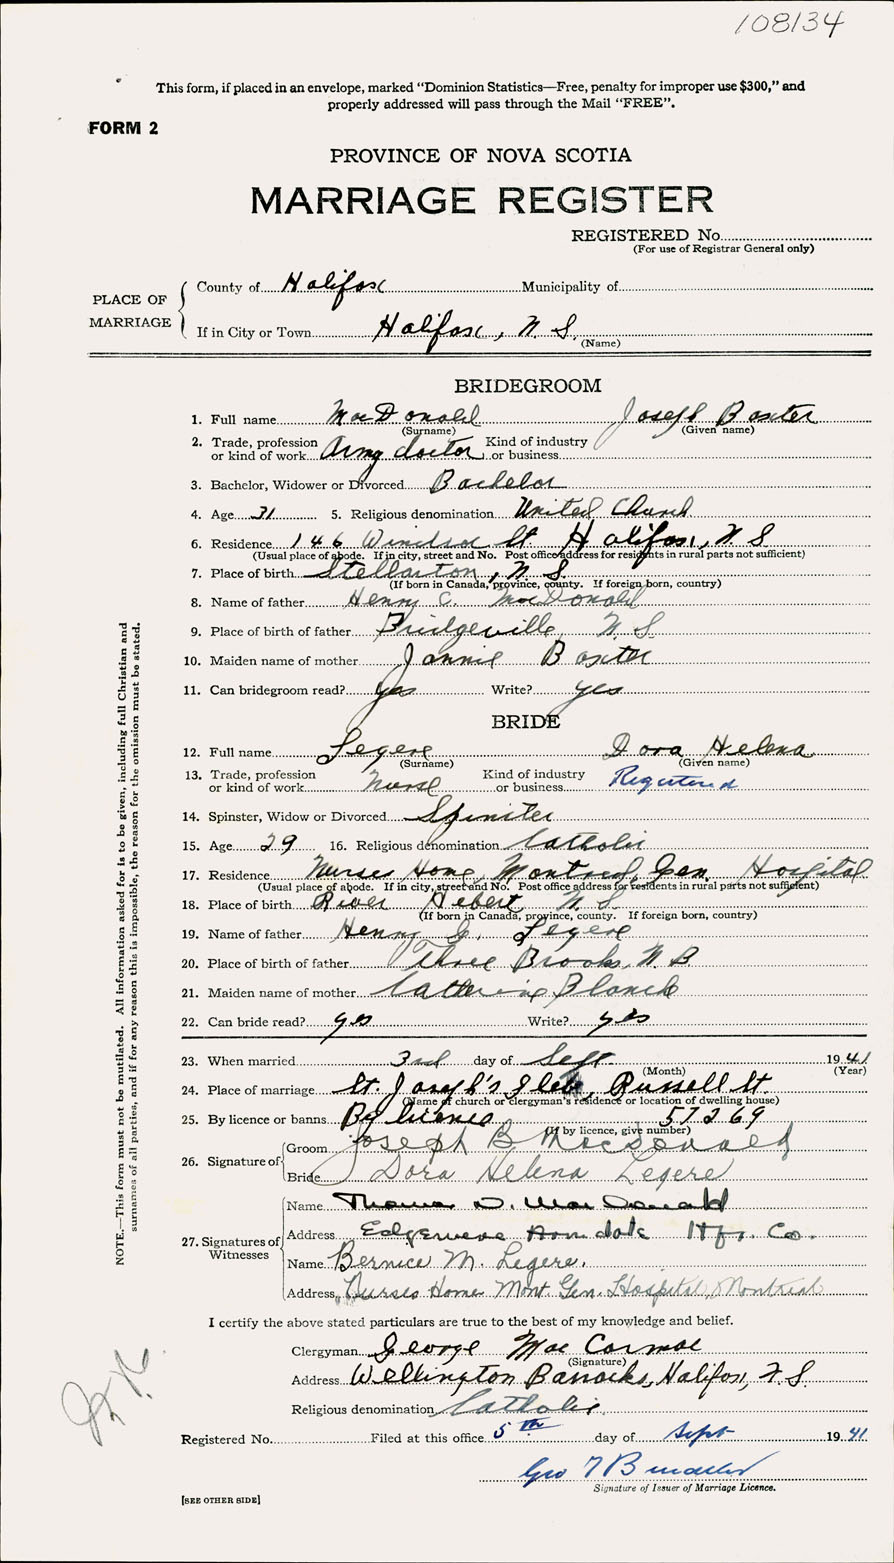 108134
This form, if placed in an envelope, marked "Dominion Statistics—Free, penalty for improper use $300," and
properly addressed will pass through the Mail "FREE".
FORM 2
PROVINCE OF NOVA SCOTIA
MARRIAGE REGISTER
REGISTERED No.
(For use of Registrar General only)
PLACE OF MARRIAGE
County of Halifax Municipality of
If in City or Town Halifax, N.S.
(Name)
BRIDEGROOM
1. Full name MacDonald Joseph Baxter
(Surname) (Given name)
2. Trade, profession or kind of work Army doctor Kind of industry or business
3. Bachelor, Widower or Divorced Bachelor
4. Age 31 5. Religious denomination United Church
6. Residence 146 Windsor St Halifax, N.S
(Usual place of abode. If in city, street and No. Post office address for residents in rural parts not sufficient)
7. Place of birth Stellarton, N.S.
(If born in Canada, province, county. If foreign born, country)
8. Name of father Henry C. MacDonald
9. Place of birth of father Bridgeville, N.S.
10. Maiden name of mother Jannie Baxter
11. Can bridegroom read? yes Write? yes
BRIDE
12. Full name Legere Dora Helena
(Surname) (Given name)
13. Trade, profession or kind of work Nurse Kind of industry or business Registered
14. Spinster, Widow or Divorced Spinster
15. Age 29 16. Religious denomination Catholic
17. Residence Nurses Home, Montreal, Gen. Hospital
(Usual place of abode. If in city, street and No. Post office address for residents in rural parts not sufficient)
18. Place of birth River Hebert N.S
(If born in Canada, province, county. If foreign born, country)
19. Name of father Henry G. Legere
20. Place of birth of father Three Brooks, N B
21. Maiden name of mother Catherine Blanch
22. Can bride read? yes Write? yes
23. When married 3rd day of Sept. 1941
(Month) (Year)
24. Place of marriage St. Joseph's Glebe, Russell St.
(Name of church or clergyman's residence or location of dwelling house)
25. By licence or banns By licence 57269
(If by licence, give number)
26. Signature of
Groom Joseph B MacDonald
Bride Dora Helena Legere
27. Signatures of Witnesses
Name Thomas D. MacDonald
Address Edgemere Armdale Hfx. Co.
Name Bernice M. Legere.
Address Nurses Home Mont. Gen. Hospital, Montreal
I certify the above stated particulars are true to the best of my knowledge and belief.
Clergyman George Mac Cormac
(Signature)
Address Wellington Barracks, Halifax, N.S.
Religious denomination Catholic
Registered No. Filed at this office 5th day of Sept 1941
Geo
Signature of Issuer of Marriage Licence.
[SEE OTHER SIDE]
NOTE.—This form must not be mutilated. All information asked for is to be given, including full Christian and
surnames of all parties, and if for any reason this is impossible, the reason for the omission must be stated.